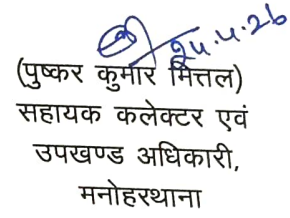 24.4.26
(पुष्कर कुमार मित्तल)
सहायक कलेक्टर एवं
उपखण्ड अधिकारी,
मनोहरथाना